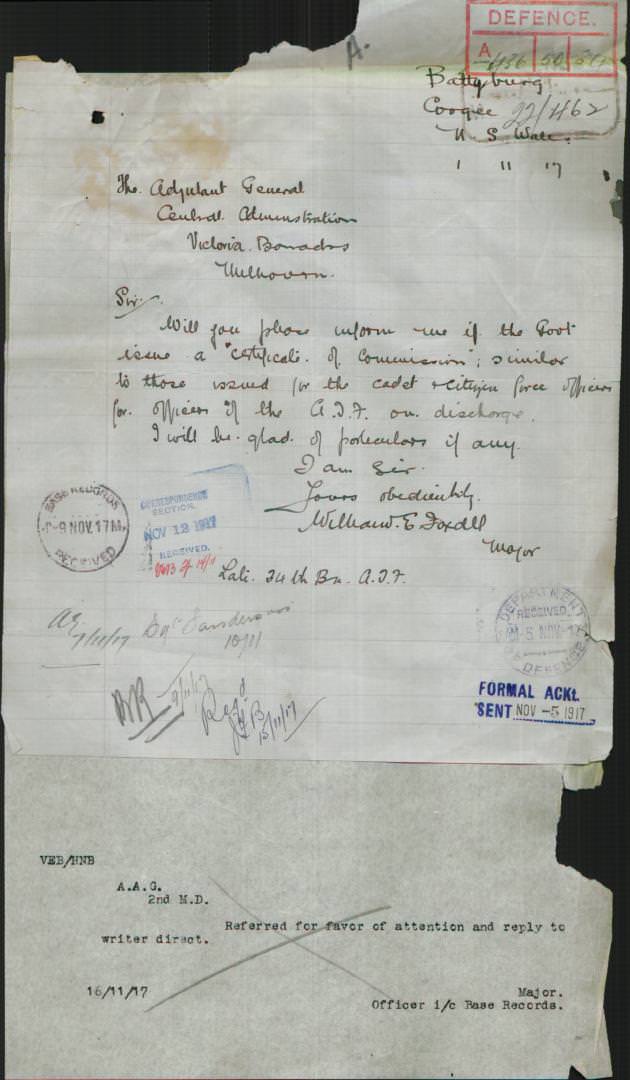 A.
DEFENCE.
A 436 50 36
Battyburg
Coogee 22/462
N S Wale.
1 11 17
The Adjutant General
Central Adminstration
Victoria Barracks
Melbourn.
Sir.
Will you please inform me if the Govt
issue a "certificate of Commission", similar
to those issued for the cadet & citizen force officers
for officers of the A.I.F. on discharge.
I will be glad of particulars if any.
I am Sir.
Yours obediently.
William. E
Major
Late. 34th Bn. A.I.F.
BASE RECORDS
9 NOV. 17
RECEIVED
CORRESPONDENCE
SECTION.
NOV 12 1917
RECEIVED.
DEPARTMENT
RECEIVED
5 NOV
DEFENCE
7/11/17
10/11
9/11/17
Reg'd
B
15/11/17
FORMAL ACKt.
SENT NOV -5 1917
VEB/HNB
A.A.G.
2nd M.D.
Referred for favor of attention and reply to
writer direct.
16/11/17
Major.
Officer i/c Base Records.